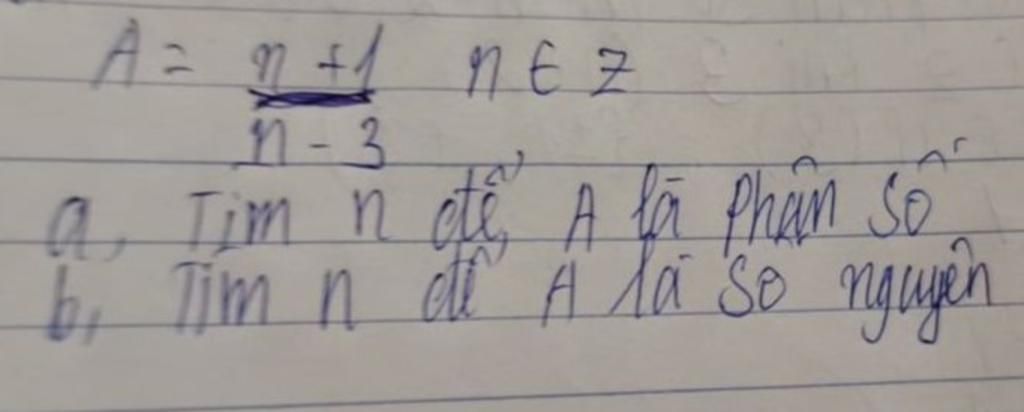 A = n + 1 n ∈ Z
n - 3
a, Tìm n để A là phân số
b, Tìm n để A là số nguyên